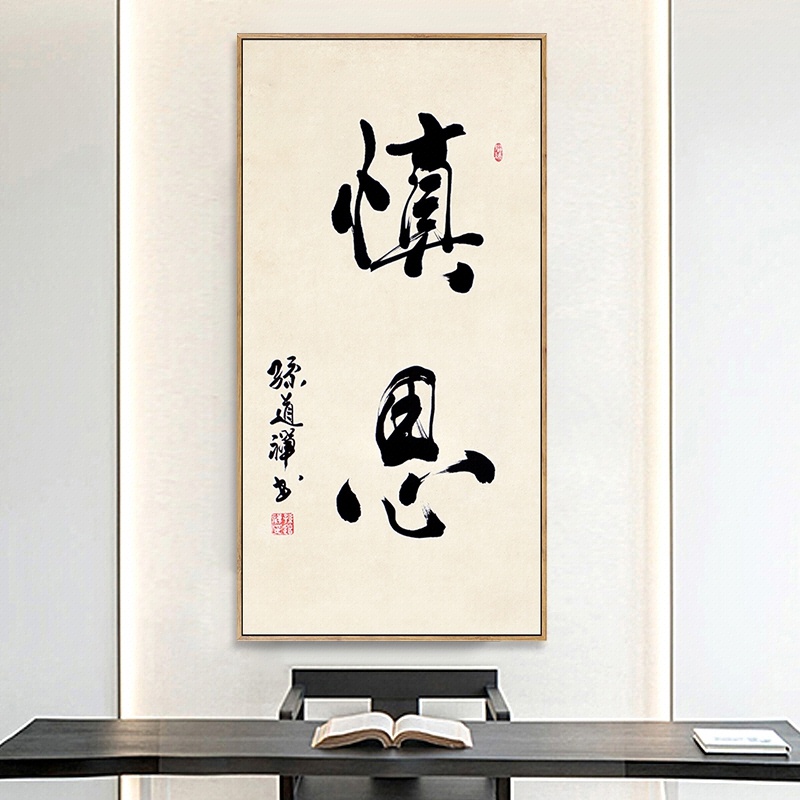 慎思
孫道禪书